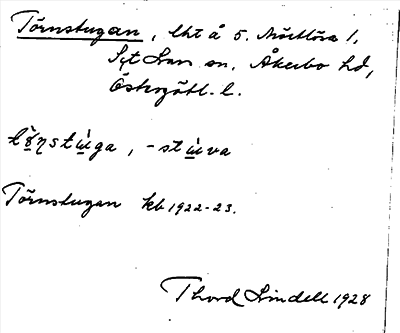 Törnstugan, lht å S. Mörtlösa 1,
S:t Lars sn, Åkerbo hd,
Östergötl. l.
tö̀ɳstùga, -stùva
Törnstugan kb 1922-23.
Thord Lindell 1928